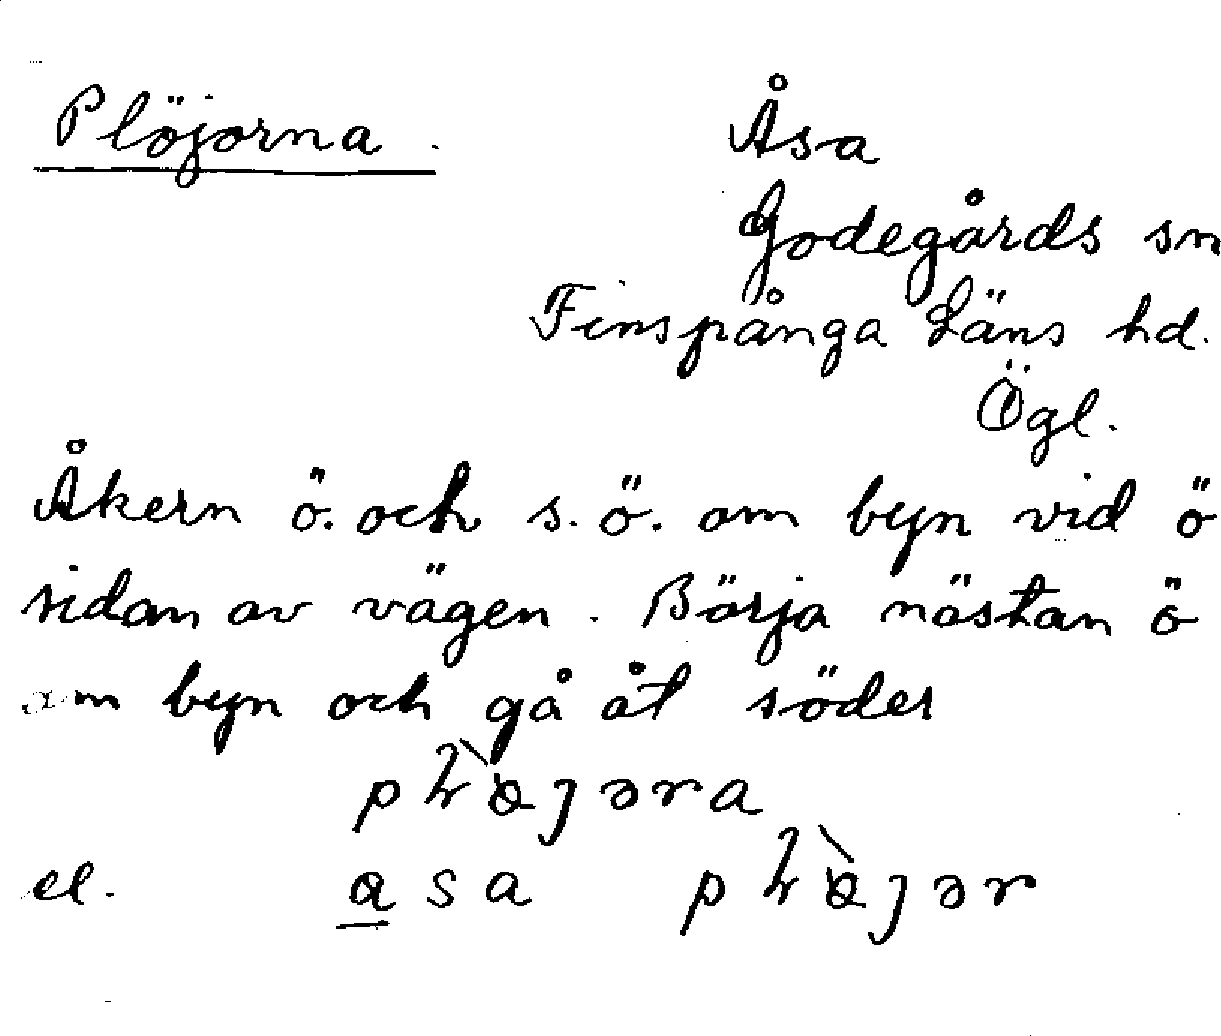 Plöjorna.
Åsa
Godegårds sn
Finspånga Läns hd.
Ögl.
Åkern ö. och s.ö. om byn vid ö
sidan av vägen. Börja nästan ö
om byn och gå åt söder
el. asa